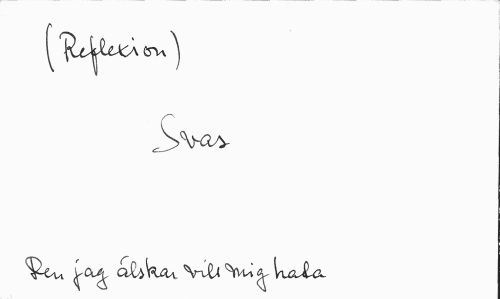 (Reflexion)
Svas
Den jag älskar vill mig hata